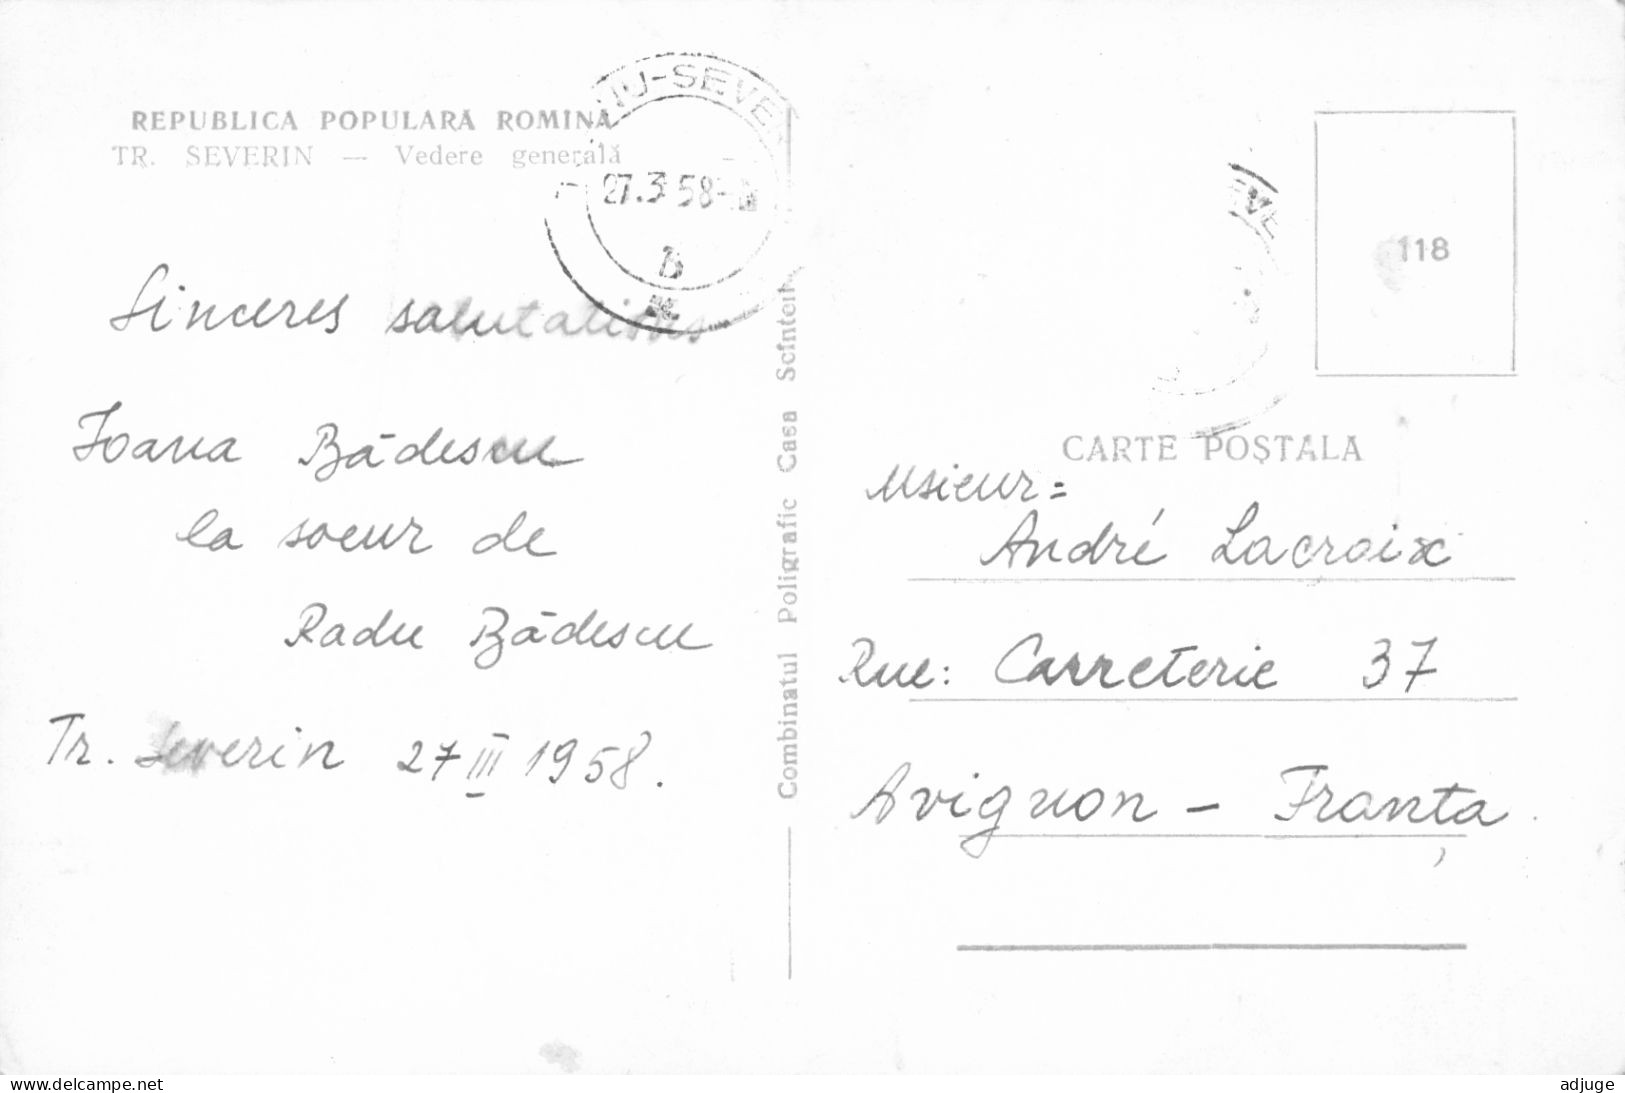 REPUBLICA POPULARĂ ROMINĂ
TR. SEVERIN — Vedere generală
NU-SEVE
27.3 58
B
Sinceres salutations
Ioana Bādescu
la soeur de
Radu Bādescu
Tr. Severin 27 III 1958.
Combinatul Poligrafic Casa Scînteii
EVE
118
CARTE POŞTALA
Msieur=
André Lacroix
Rue: Carreterie 37
Avignon – Franța.
www.delcampe.net
adjuge